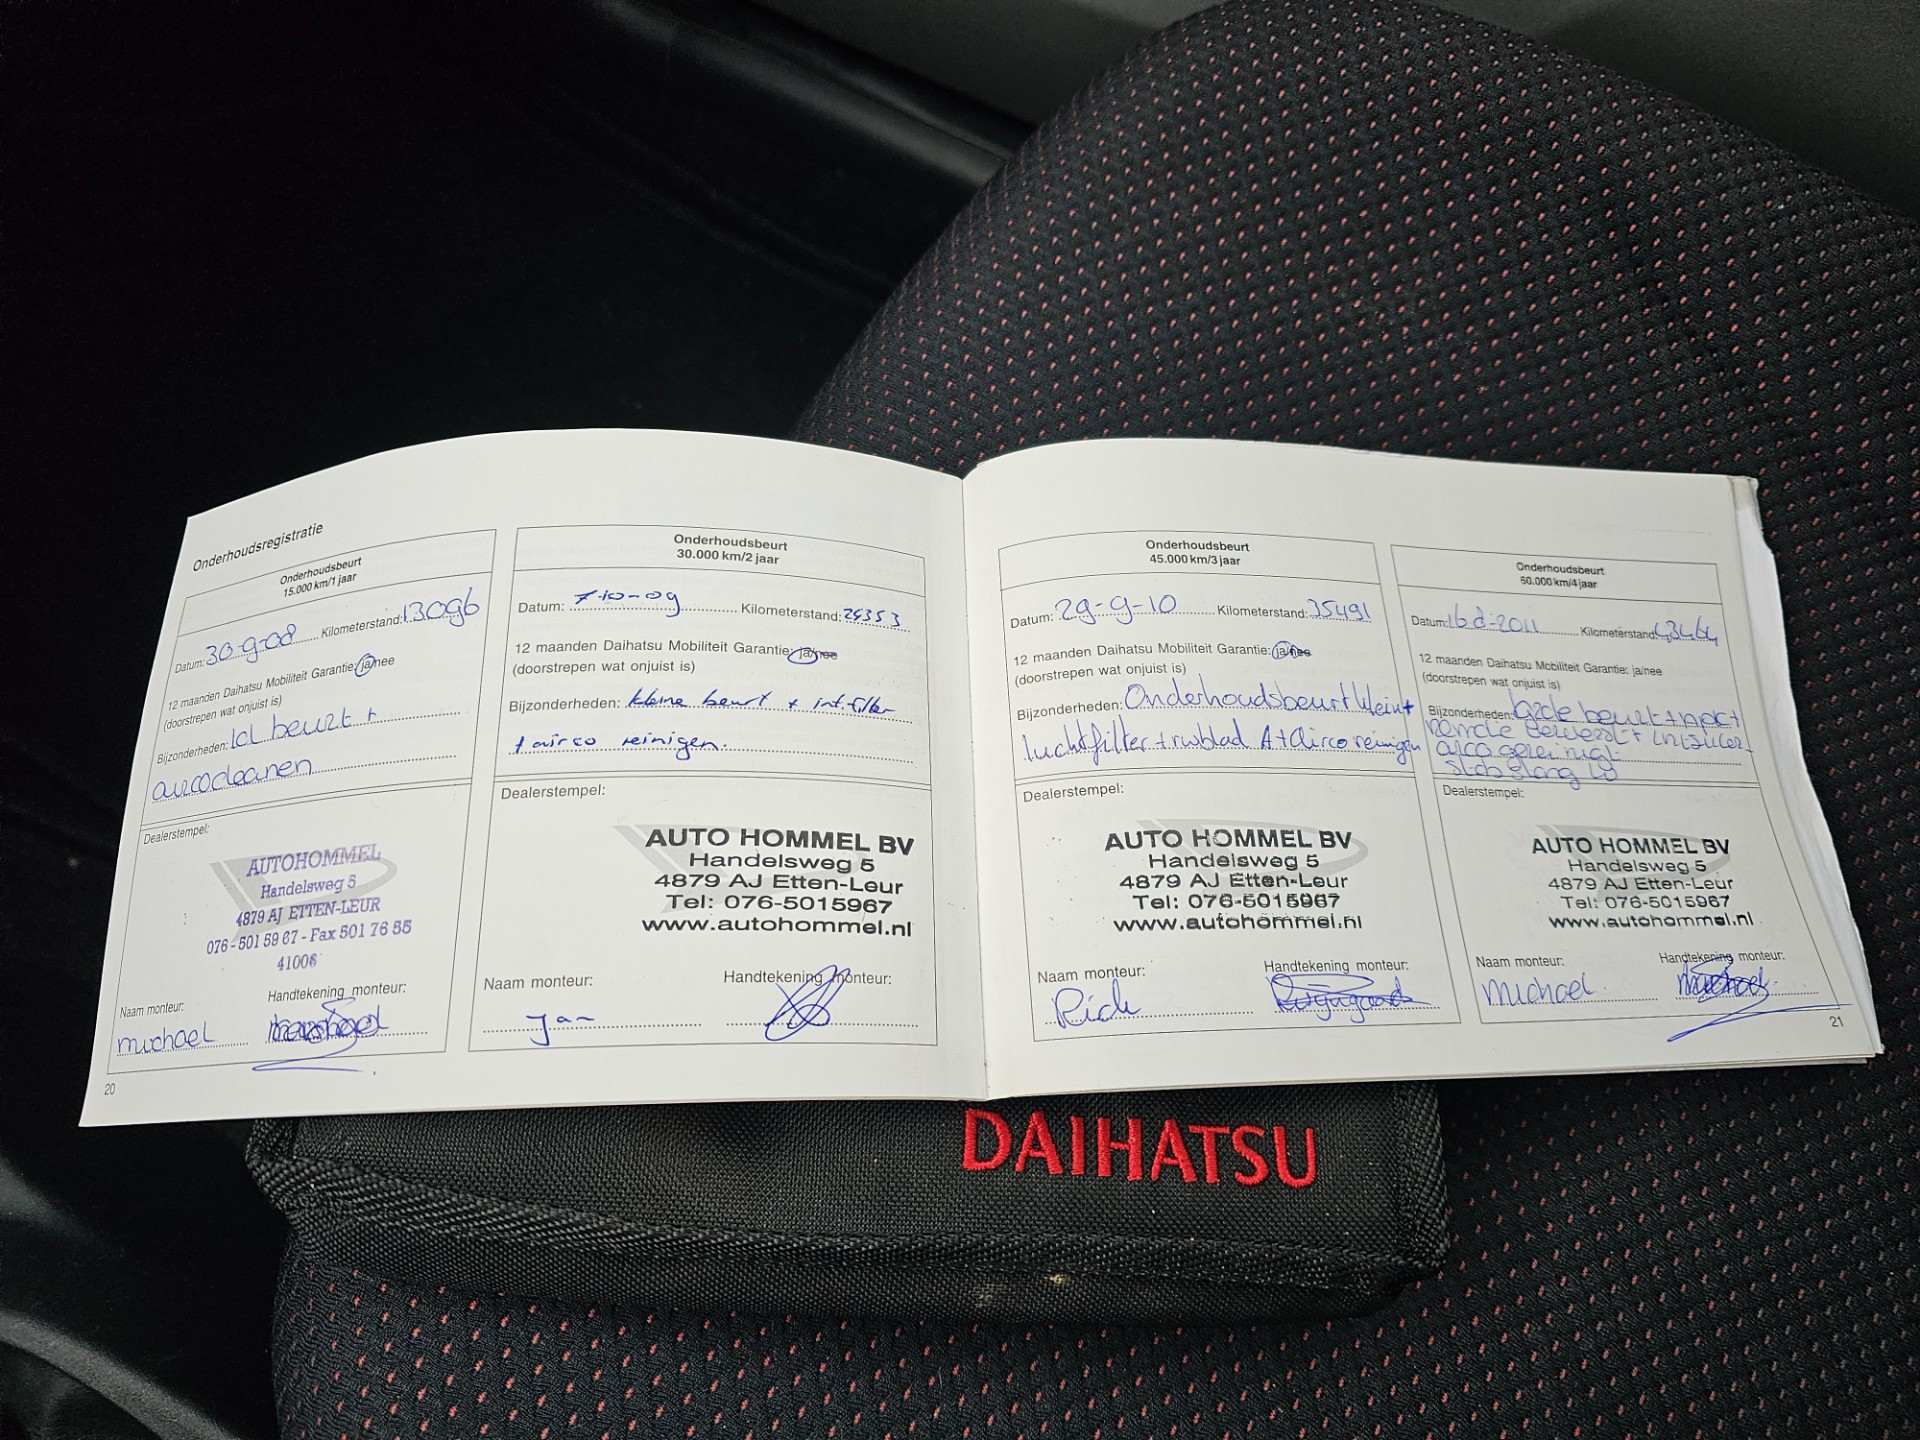 Onderhoudsregistratie
Onderhoudsbeurt
15.000 km/1 jaar
Datum: 30-9-08 Kilometerstand: 13096
12 maanden Daihatsu Mobiliteit Garantie: ja/nee
(doorstrepen wat onjuist is)
Bijzonderheden: beurt +
aircocleanen
Dealerstempel:
AUTOHOMMEL
Handelsweg 5
4879 AJ ETTEN-LEUR
076 - 501 59 67 - Fax 501 76 55
41006
Naam monteur: Handtekening monteur:
michael
20
Onderhoudsbeurt
30.000 km/2 jaar
Datum: 7-10-09 Kilometerstand: 24353
12 maanden Daihatsu Mobiliteit Garantie: ja/nee
(doorstrepen wat onjuist is)
Bijzonderheden: kleine beurt + int.filter
+ airco reinigen.
Dealerstempel:
AUTO HOMMEL BV
Handelsweg 5
4879 AJ Etten-Leur
Tel: 076-5015967
www.autohommel.nl
Naam monteur: Handtekening monteur:
Jan
Onderhoudsbeurt
45.000 km/3 jaar
Datum: 29-9-10 Kilometerstand: 35491
12 maanden Daihatsu Mobiliteit Garantie: ja/nee
(doorstrepen wat onjuist is)
Bijzonderheden: Onderhoudsbeurt klein+
luchtfilter + rwblad A + Airco reinigen
Dealerstempel:
AUTO HOMMEL BV
Handelsweg 5
4879 AJ Etten-Leur
Tel: 076-5015967
www.autohommel.nl
Naam monteur: Handtekening monteur:
Rick
Onderhoudsbeurt
60.000 km/4 jaar
Datum: 2011 Kilometerstand: 43464
12 maanden Daihatsu Mobiliteit Garantie: ja/nee
(doorstrepen wat onjuist is)
Bijzonderheden: beurt + apk +
airco gereinigd
Dealerstempel:
AUTO HOMMEL BV
Handelsweg 5
4879 AJ Etten-Leur
Tel: 076-5015967
www.autohommel.nl
Naam monteur: Handtekening monteur:
michael
21
DAIHATSU